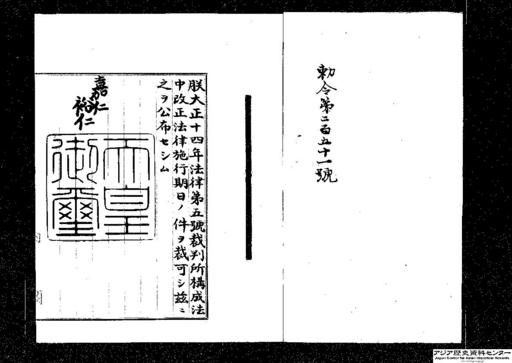 勅令第二百五十一號
朕大正十四年法律第五號裁判所構成法
中改正法律施行期日ノ件ヲ裁可シ茲ニ
之ヲ公布セシム
嘉仁
裕仁
天皇
御璽
アジア歴史資料センター
Japan Center for Asian Historical Records